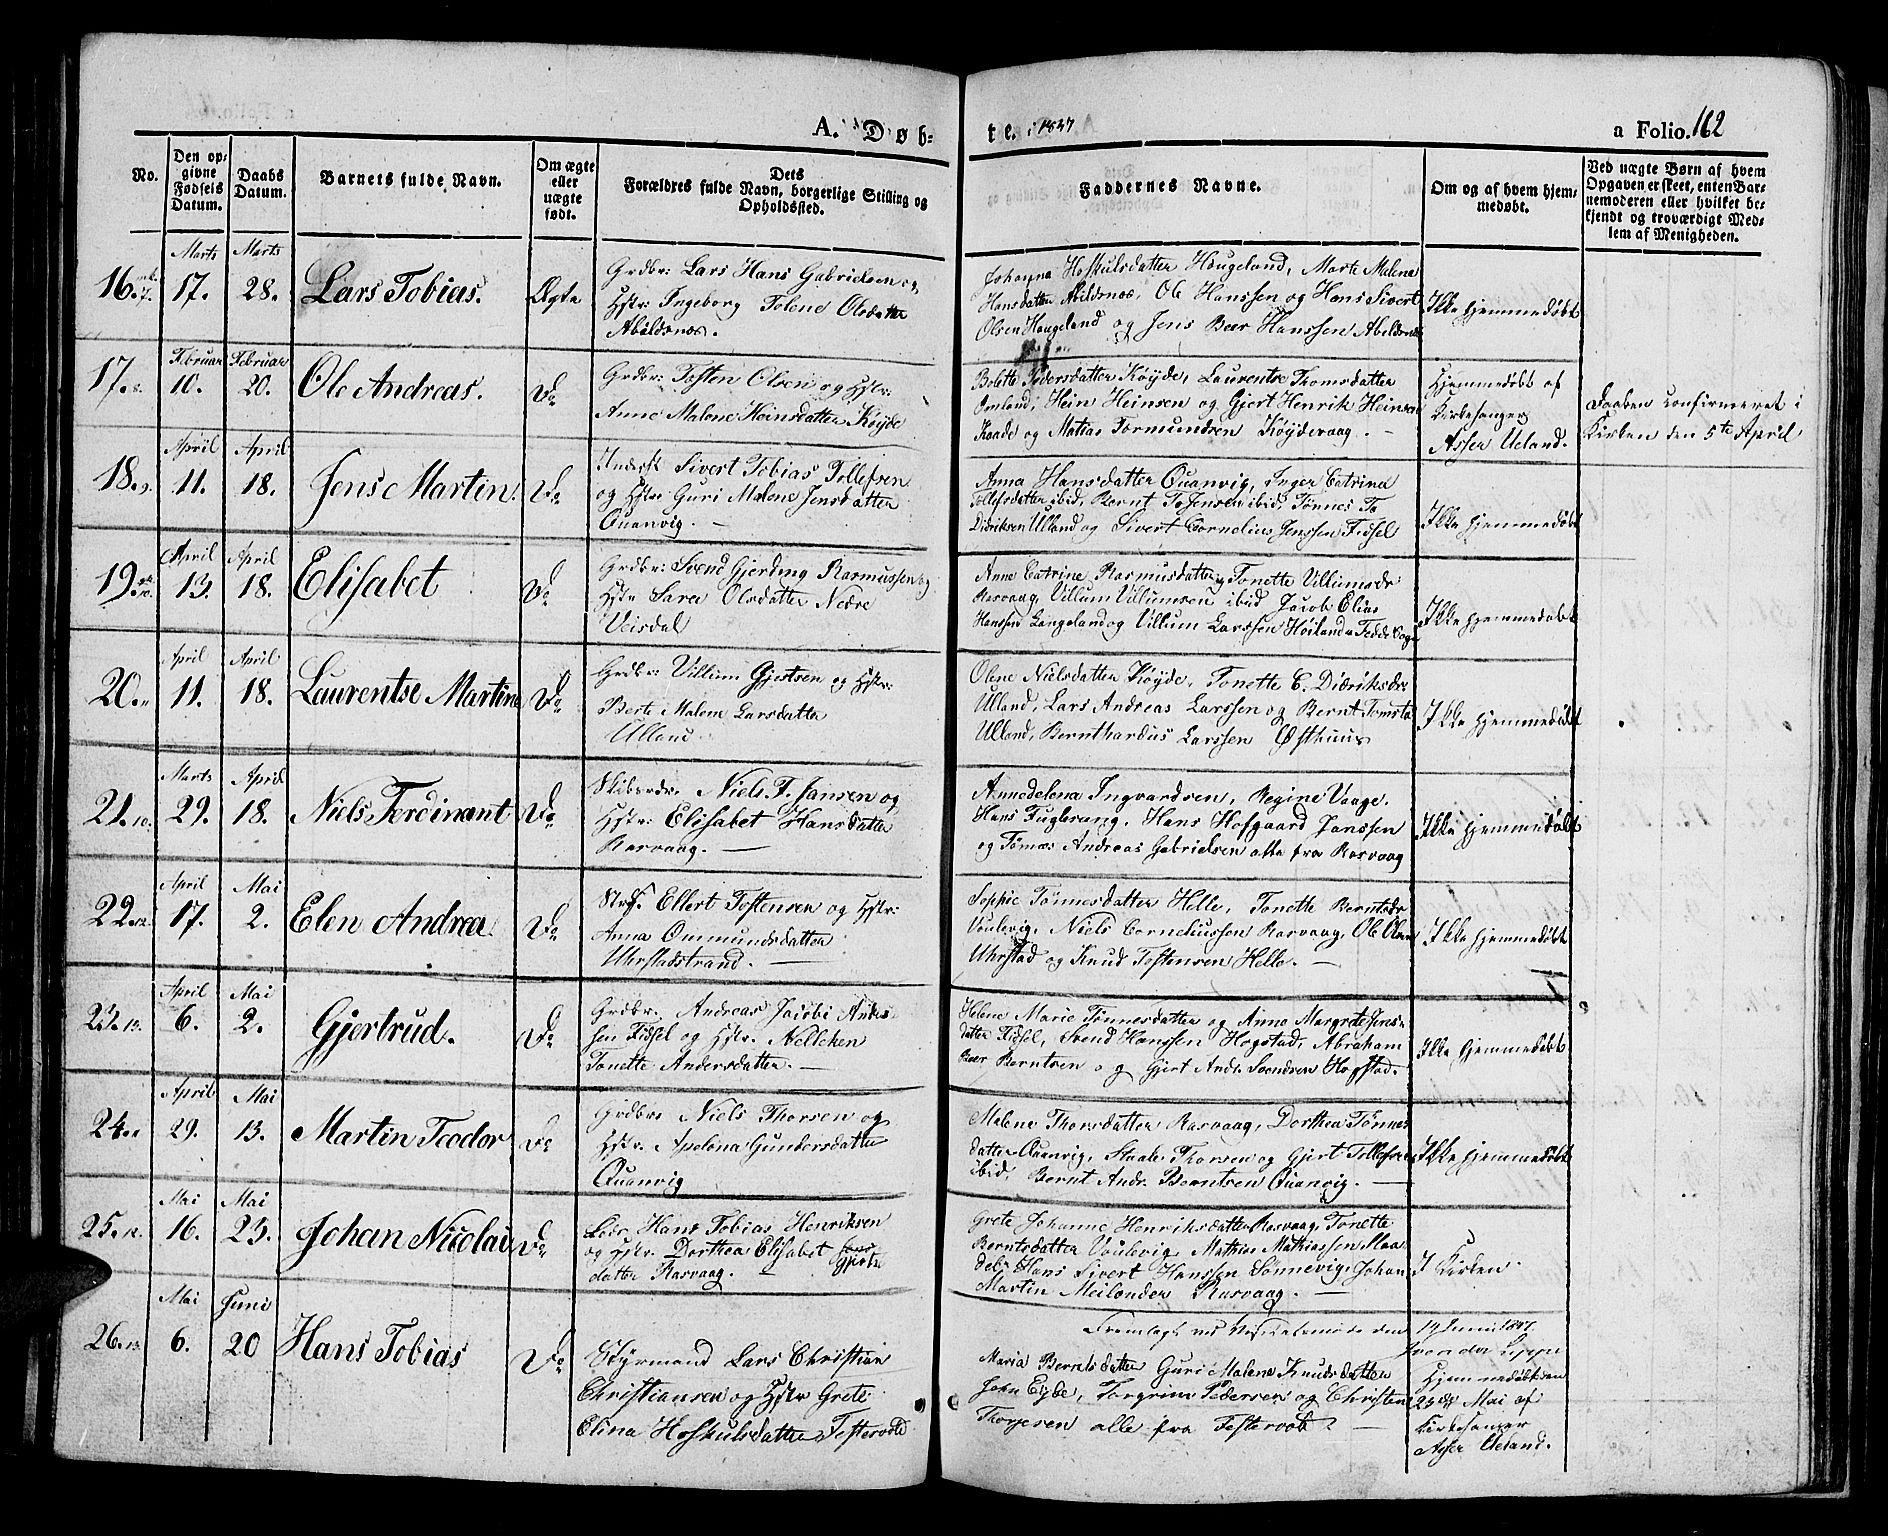 A. Døb-
te. i 1847
a Folio. 162
No.
Den op-
givne
Fødsels
Datum.
Daabs
Datum.
Barnets fulde Navn.
Om ægte
eller
uægte
født.
Dets
Forældres fulde Navn, borgerlige Stilling og
Opholdssted.
Faddernes Navne.
Om og af hvem hjem-
medøbt.
Ved uægte Børn af hvem
Opgaven er skeet, enten Bar-
nemoderen eller hvilket be-
kjendt og troværdigt Med-
lem af Menigheden.
16. 7. Marts 17. Marts 28. Lars Tobias. Ægte
Grdbr: Lars Hans Gabrielsen og
Hstr: Ingeborg Tolene Olsdatter
Abildsnæs.
Johanna Hoskulsdatter Haugeland, Marte Malena
Hansdatter Abildsnæs, Ole Hanssen og Hans Sivert
Olsen Haugeland og Jens Beer Hanssen Abeldsnæs
Ikke hjemmedøbt
17. 8. Februar 10. Februar 20. Ole Andreas. Do
Grdbr: Tosten Olsen og Hstr:
Anne Malene Heinsdatter Køyde
Bolette Pedersdatter Køyde, Laurentse Thomsdatter
Omland, Hein Heinsen og Gjert Henrik Heinsen
Kaade og Matias Tormundsen Køydevaag. —
Hjemmedøbt af
Kirkesanger
Asser Ueland.
Daaben confirmeret i
Kirken den 5te April
18. 9. April 11. April 18. Jens Martin. Do
Inderst Sivert Tobias Tollefsen
og Hstr Guri Malene Jensdatter
Qvanvig. —
Anna Hansdatter Qvanvig, Inger Catrina
Tollefsdatter ibid, Bernt To Jensen ibid, Tønnes To
Didriksen Ulland og Sivert Cornelius Jenssen Fidsel
Ikke hjemmedøbt
19. 10. April 13. April 18. Elisabet Do
Grdbr: Svend Gjerding Rasmussen og
Hstr Sara Olsdatter Nedre
Veisdal
Anne Catrine Rasmusdatter, Tonette Villumsdr:
Rasvaag, Villum Villumsen ibid Jacob Elias
Hanssen Langeland og Villum Larssen Høiland Fede Sogn
Ikke hjemmedøbt
20. 11 April 11. April 18. Laurentse Martine Do
Grdbr: Villum Gjertsen og Hstr:
Berte Malene Larsdatter
Ulland.
Olene Nielsdatter Køyde, Tonette C. Didriksdr:
Ulland, Lars Andreas Larssen og Bernt Tomsta
Ulland, Bernthardus Larssen Østhuus
Ikke hjemmedøbt
21. 10. Marts 29. April 18. Niels Ferdinant Do
Skibsrdr. Niels F. Jansen og
Hstr: Elisabet Hansdatter
Rasvaag. —
Annedelena Ingvardsen, Regine Vaage.
Hans Fuglevang, Hans Hofgaard Janssen
og Tønnes Andreas Gabrielsen alle fra Rasvaag
Ikke hjemmedøbt
22. 12. April 17. Mai 2. Elen Andrea Do
Strs. Ellert Tostensen og Hstr:
Anna Ommundsdatter
Uhrstadstrand. —
Sophie Tønnesdatter Helle, Tonette Berntsdr
Voulevig, Niels Corneliussen Rasvaag, Ole Olsen
Uhrstad og Knud Tostensen Helle. —
Ikke hjemmedøbt
23. 13. April 6. Mai 2. Gjertrud. Do
Grdbr. Andreas Jacobi Anders-
sen Fidsel og Hstr. Nelleken
Tonette Andersdatter. —
Helene Marie Tønnesdatter og Anne Margrete Jens-
datter Fidsel, Svend Hanssen Hogstad, Abraham
Beer Berntsen og Gjert Andr. Svendsen Hogstad.
Ikke hjemmedøbt
24. April 29. Mai 13. Martin Teodor Do
Grdbr: Niels Thorsen og
Hstr. Apolona Gundersdatter
Qvanvig
Malene Thorsdatter Rasvaag, Dorthea Tønnes
datter Qvanvig, Staale Thorsen og Gjert Tollefsen
ibid, Bernt Andr. Berntsen Qvanvig. —
Ikke hjemmedøbt
25. 12. Mai 16. Mai 23. Johan Nicolai Do
Lods Hans Tobias Henriksen
og Hstr. Dorthea Elisabet Gjerts
datter Rasvaag. —
Grete Johanne Henriksdatter Rasvaag, Tonette
Berntsdatter Voulevig, Mathias Mathiassen Maa
deb, Hans Sivert Hanssen Sønnevig, Johan
Martin Meilander Rasvaag. —
I Kirken.
26. 13. Mai 6. Juni 20 Hans Tobias Do
Styrmand Lars Christian
Christiansen og Hstr Grete
Elina Hoskulsdatter Festervold
Fremlagt ved Visitatsmøde den 14 Juni 1847.
Maria Berntsdatter Guri Malene Knudsdatter
John Eyde, Torgrim Pedersen og Christen
Thorjesen alle fra Festervold —
Hjemmedøbt den
23de Mai af
Kirkesanger
Asser Ueland.